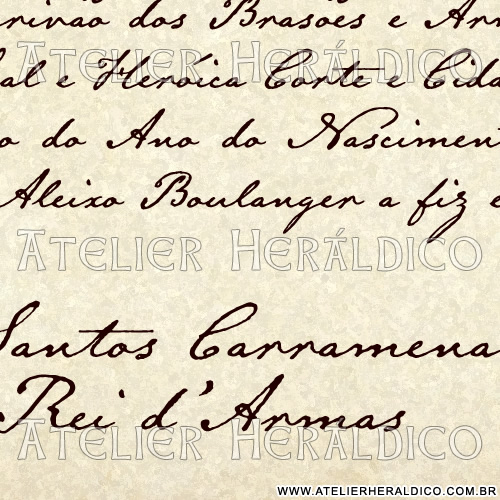 rivão dos Brasões e Ar
Atelier Heráldico
al e Heróica Corte e Cida
o do Ano do Nascimen
Aleixo Boulanger a fiz e
Atelier Heráldico
Santos Carramena
Rei d'Armas
Atelier Heráldico
www.atelierheraldico.com.br